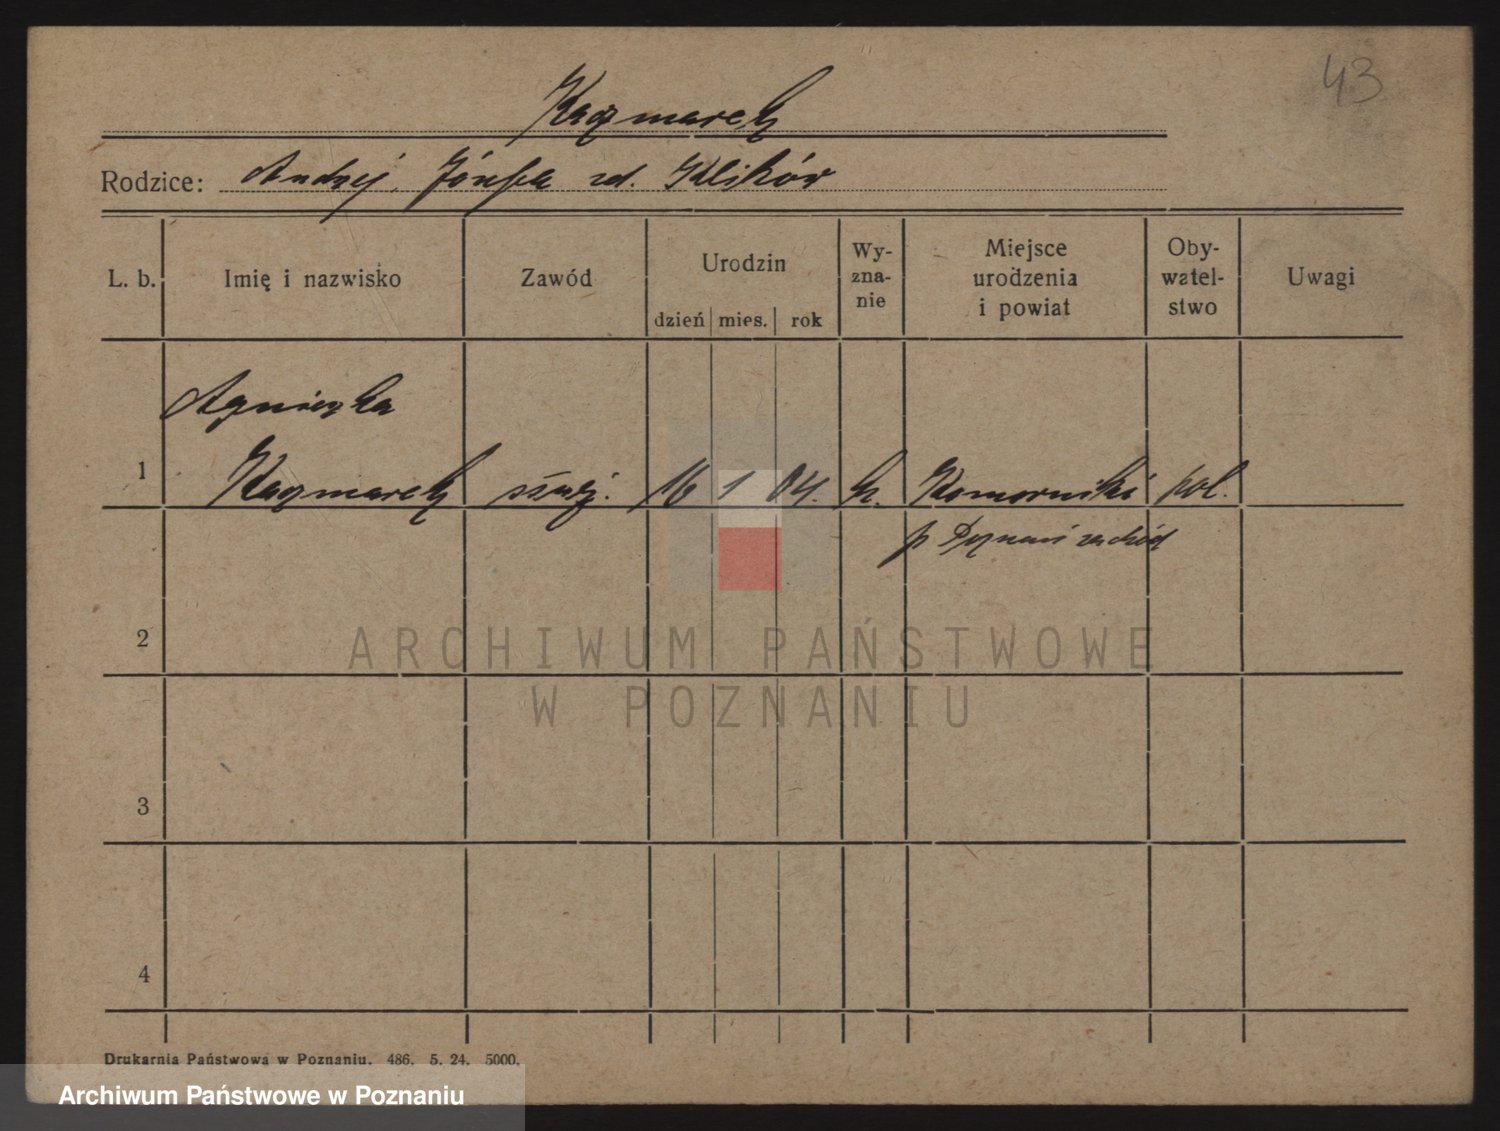 43
Kaczmarek
Rodzice: Andrzej, Józefa zd. Klików
L. b. Imię i nazwisko Zawód Urodzin dzień mies. rok Wy- zna- nie Miejsce urodzenia i powiat Oby- watel- stwo Uwagi
Agnieszka
1 Kaczmarek służ. 16 1 04. k. Komorniki pol.
p Poznań zachód
2
ARCHIWUM PAŃSTWOWE
W POZNANIU
3
4
Drukarnia Państwowa w Poznaniu. 486. 5. 24. 5000.
Archiwum Państwowe w Poznaniu